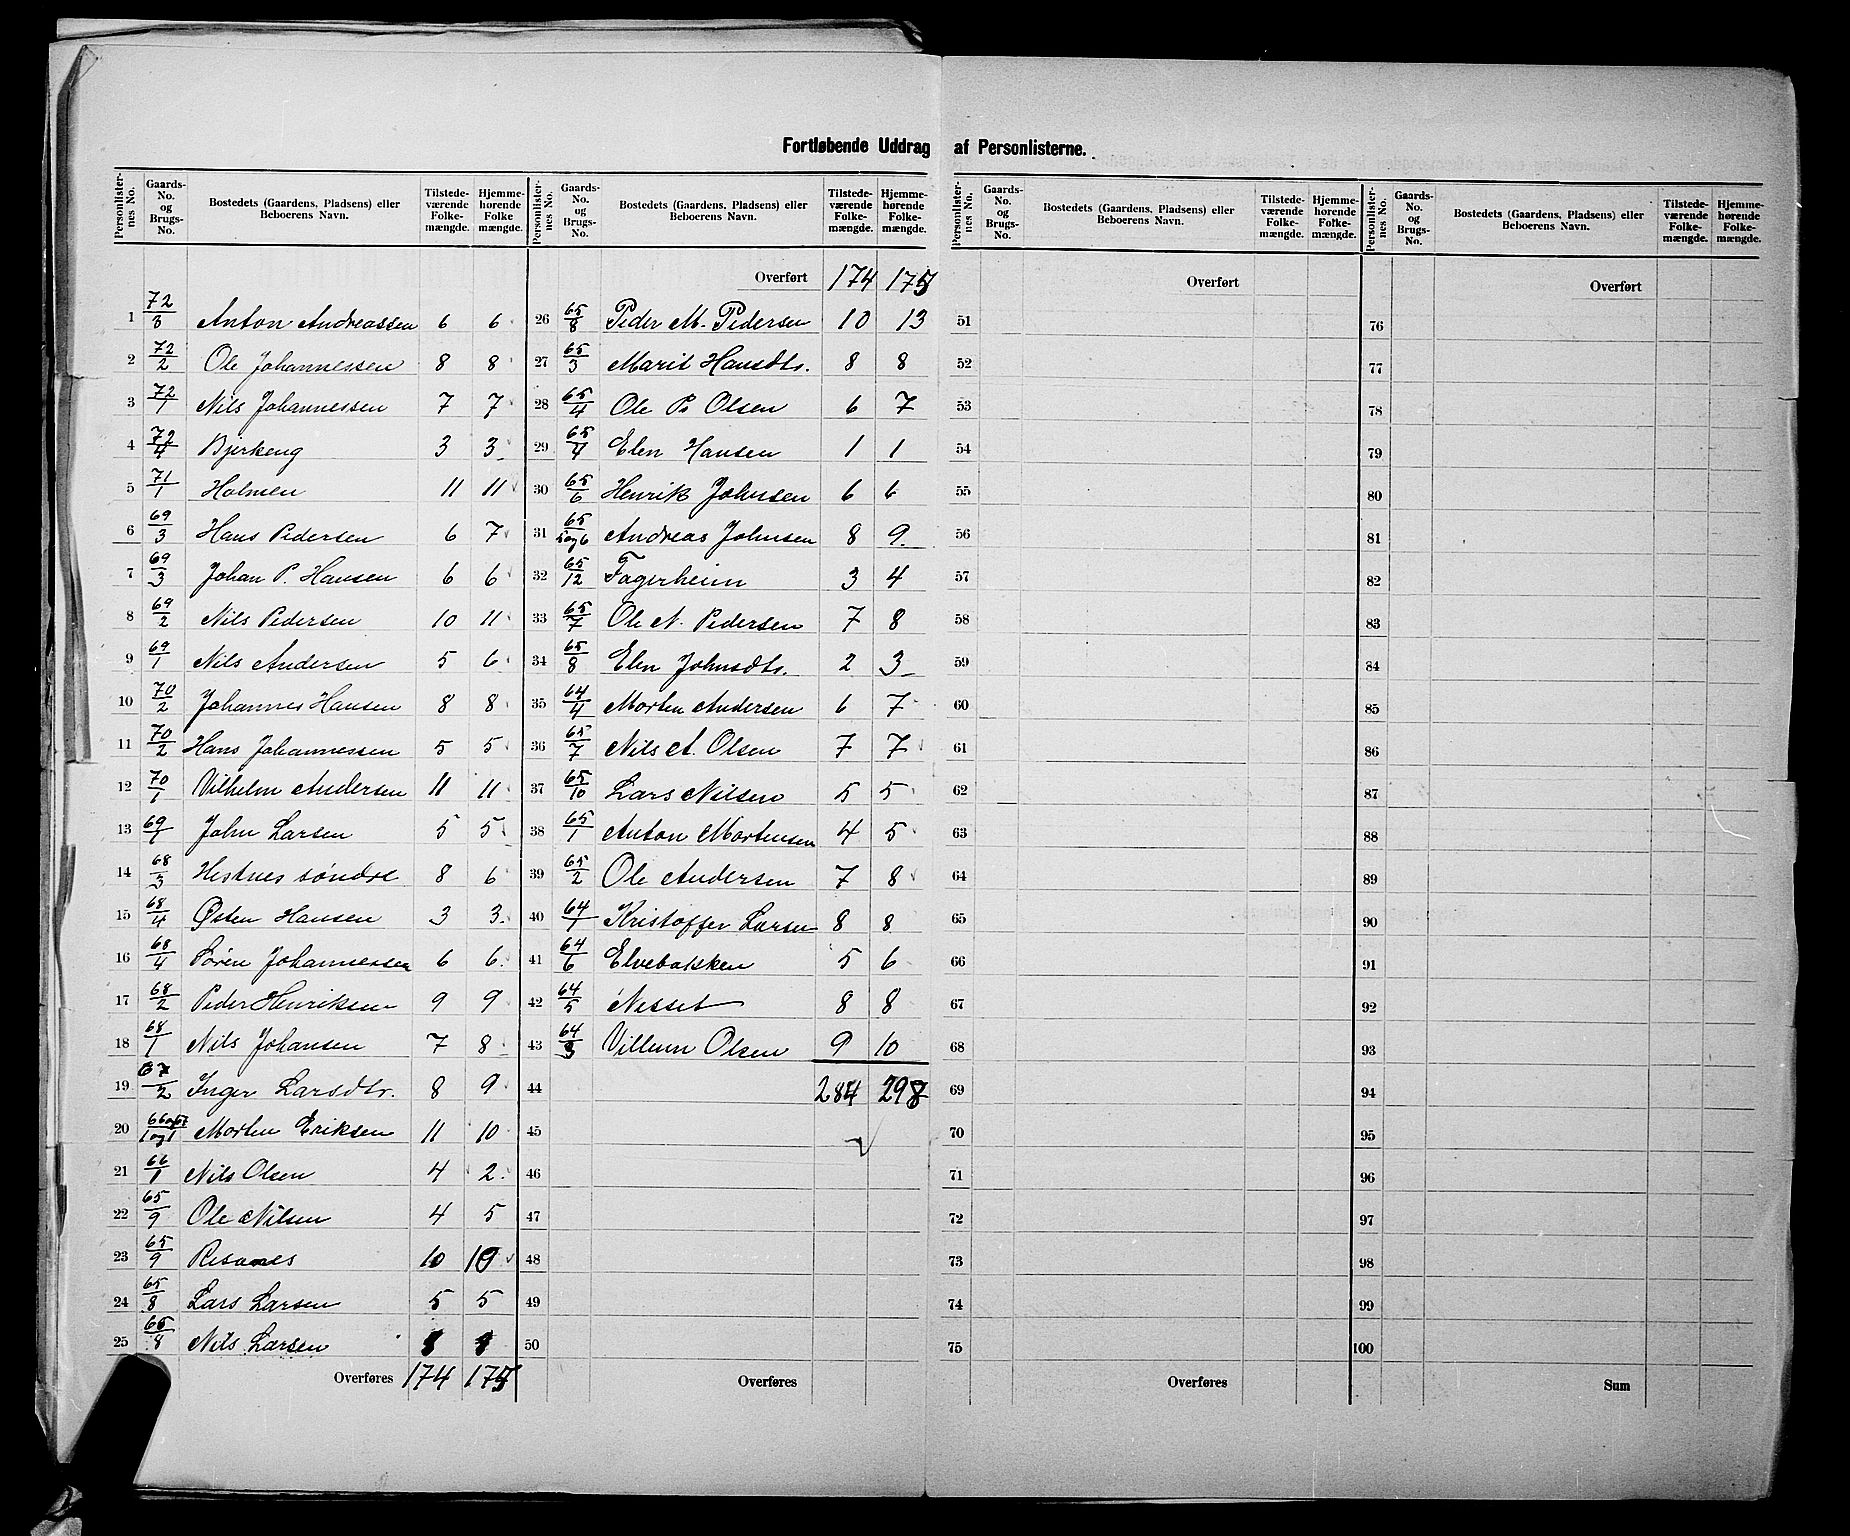 Fortløbende Uddrag af Personlisterne.
Personlister-nes No. | Gaards-No. og Brugs-No. | Bostedets (Gaardens, Pladsens) eller Beboerens Navn. | Tilstede-værende Folke-mængde. | Hjemme-hørende Folke mængde.
1 72/3 Anton Andreassen 6 6
2 72/2 Ole Johannessen 8 8
3 72/1 Nils Johannessen 7 7
4 72/4 Bjerkeng 3 3
5 71/1 Holmen 11 11
6 69/3 Hans Pedersen 6 7
7 69/3 Johan P. Hansen 6 6
8 69/2 Nils Pedersen 10 11
9 69/1 Nils Andersen 5 6
10 70/2 Johannes Hansen 8 8
11 70/2 Hans Johannessen 5 5
12 70/1 Vilhelm Andersen 11 11
13 69/1 John Larsen 5 5
14 68/3 Hestnes søndre 8 6
15 68/4 Østen Hansen 3 3
16 68/4 Søren Johannessen 6 6
17 68/2 Peder Henriksen 9 9
18 68/1 Nils Johansen 7 8
19 67/2 Inger Larsdtr. 8 9
20 1og1 Morten Eriksen 11 10
21 66/1 Nils Olsen 4 2
22 65/9 Ole Nilsen 4 5
23 65/9 Risanes 10 10
24 65/8 Lars Larsen 5 5
25 65/8 Nils Larsen
Overføres 174 175
Personlister-nes No. | Gaards-No. og Brugs-No. | Bostedets (Gaardens, Pladsens) eller Beboerens Navn. | Tilstede-værende Folke-mængde. | Hjemme-hørende Folke-mængde.
Overført 174 175
26 65/8 Peder M. Pedersen 10 13
27 65/3 Marit Hansdtr. 8 8
28 65/4 Ole P. Olsen 6 7
29 65/4 Elen Hansen 1 1
30 65/6 Henrik Johnsen 6 6
31 65/5og6 Andreas Johnsen 8 9
32 65/12 Fagerheim 3 4
33 65/7 Ole N. Pedersen 7 8
34 65/8 Elen Johnsdtr. 2 3
35 64/4 Morten Andersen 6 7
36 65/7 Nils A. Olsen 7 7
37 65/10 Lars Nilsen 5 5
38 65/1 Anton Mortensen 4 5
39 65/2 Ole Andersen 7 8
40 64/1 Kristoffer Larsen 8 8
41 64/6 Elvebakken 5 6
42 64/5 Nesset 8 8
43 64/3 Villum Olsen 9 10
44 284 298
45
46
47
48
49
50
Overføres
Personlister-nes No. | Gaards-No. og Brugs-No. | Bostedets (Gaardens, Pladsens) eller Beboerens Navn. | Tilstede-værende Folke-mængde. | Hjemme-hørende Folke-mængde.
Overført
51
52
53
54
55
56
57
58
59
60
61
62
63
64
65
66
67
68
69
70
71
72
73
74
75
Overføres
Personlister-nes No. | Gaards-No. og Brugs-No. | Bostedets (Gaardens, Pladsens) eller Beboerens Navn. | Tilstede-værende Folke-mængde. | Hjemme-hørende Folke-mængde.
Overført
76
77
78
79
80
81
82
83
84
85
86
87
88
89
90
91
92
93
94
95
96
97
98
99
100
Sum